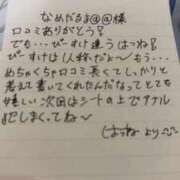 なめだるよ@@様
口コミありがとう!
でも…びーすけ違うはつね!
びーすけは1人称だよ〜もう…
めちゃくちゃ口コミ長くてしっかりと
考えて書いてくれたんだなってとても
嬉しい 次回はシートの上でアナル
犯しまくってね
はつねより